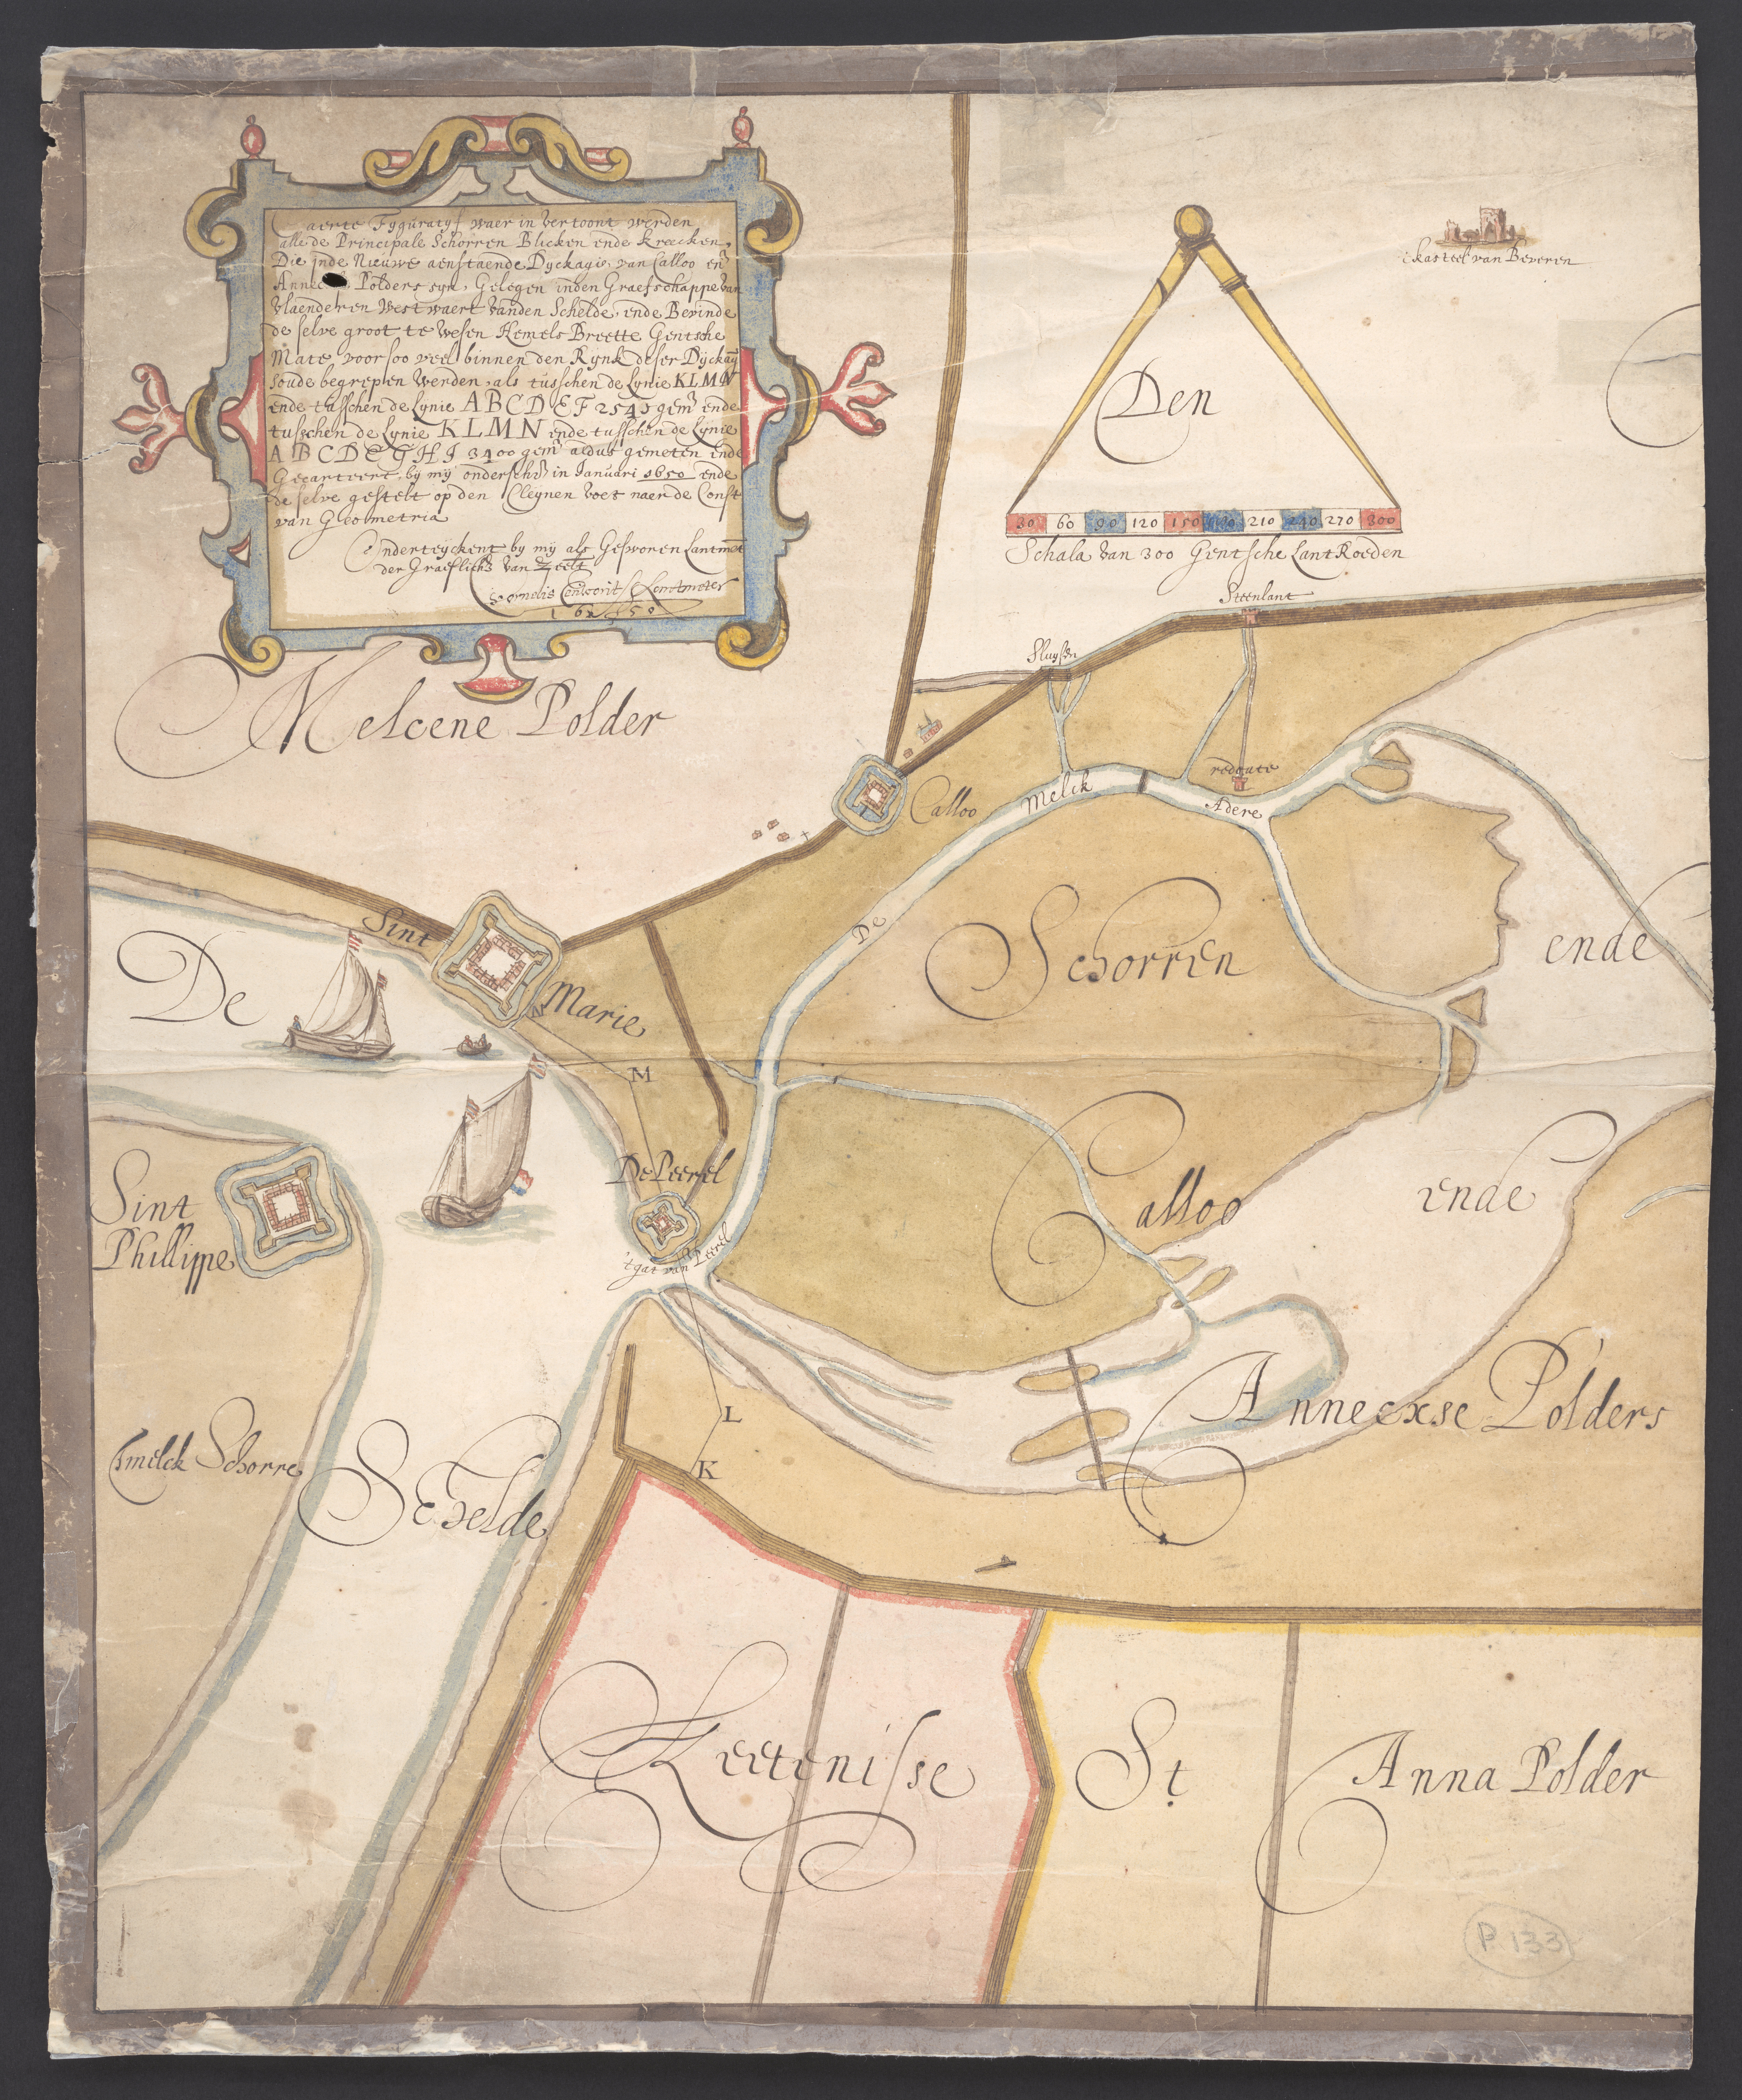 Caerte Fyguratyf waer in vertoont werden
alle de Principale Schorren Blicken ende kreecken,
Die inde Nieuwe aenstaende Dyckagie, van Calloo en
Polders syn, Gelegen inden Graefschappe van
Vlaenderen Westwaert vanden Schelde, ende Bevinde
de selve groot te wesen Hemels Breette Gentsche
Mate, voor soo veel binnen den Rynk deser Dyckagi
soude begrepen werden, als tusschen de Lynie KLMN
ende tusschen de Lynie ABCDEF 2545 gem ende
tusschen de Lynie KLMN ende tusschen de Lynie
ABCDEGHI 3400 gem aldus gemeten ende
Gecarteert, by my onderschr in Januari 1650 ende
de selve gestelt op den Cleynen voet naer de Const
van Geometria
Onderteyckent by my als Gesworen Lantmet
der Graeflich van Zeelt
Cornelis Lantmeter
1650
t kasteel van Beveren
Den
30 60 90 120 150 180 210 240 270 300
Schala van 300 Gentsche Lant Roeden
Steenlant
Sluysen
Melcene Polder
redoute
Calloo
De Melck Adere
Sint Marie
De
Schorren
ende
N
M
De Peerel
Sint
Phillippe
Calloo
ende
't gat van Peerel
Annecxse Polders
L
K
Smelck Schorre
Schelde
Keetenisse
St
Anna Polder
P. 133